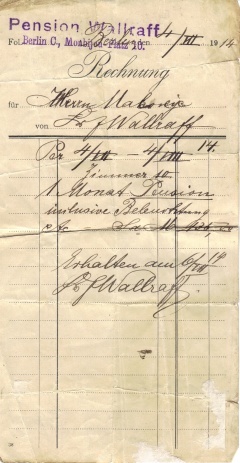 Pension Wallraff
Berlin C, Monbijou-Platz 10.
Berlin den 4/VIII 1914
Rechnung
für Herrn
von Fr J Wallraff
Per 4/VII – 4/VIII 14.
Zimmer
1 Monat Pension
inklusive Beleuchtung
Sa M
Erhalten am 6/VIII 14
Fr J Wallraff.